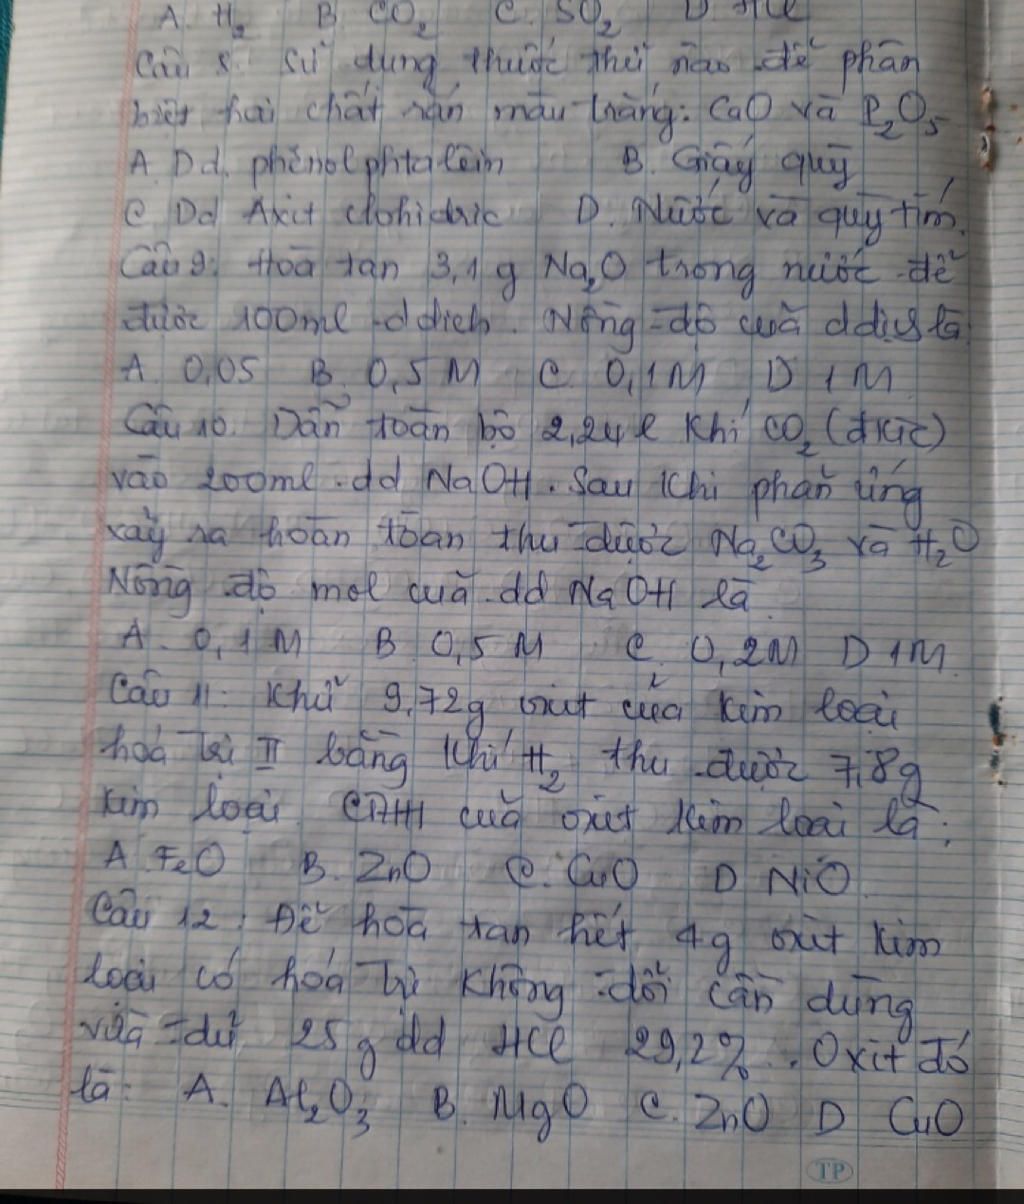 A. H₂ B. CO₂ C. SO₂ D. HCl
Câu 8. Sử dụng thuốc thử nào để phân
biệt hai chất rắn màu trắng: CaO và P₂O₅
A. Dd. phênolphtalêin B. Giấy quỳ
C. Dd Axit clohidric D. Nước và quỳ tím.
Câu 9: Hoà tan 3,1 g Na₂O trong nước để
được 100ml ddịch. Nồng độ cuả ddịch là
A. 0,05 B. 0,5 M C. 0,1M D 1M
Câu 10. Dẫn toàn bộ 2,24 l khí CO₂ (đktc)
vào 200ml dd NaOH. Sau khi phản ứng
xảy ra hoàn toàn thu được Na₂CO₃ và H₂O
Nồng độ mol cuả dd NaOH là
A. 0,1M B. 0,5 M C. 0,2M D 1M.
Câu 11: Khử 9,72g oxit của kim loại
hoá trị II bằng khí H₂ thu được 7,8g
kim loại. CTHH cuả oxit kim loại là:
A. FeO B. ZnO C. CuO D NiO.
Câu 12: Để hoà tan hết 4g oxit kim
loại có hoá trị không đổi cần dùng
vừa đủ 25g dd HCl 29,2%. Oxit đó
là: A. Al₂O₃ B. MgO C. ZnO D CuO
TP